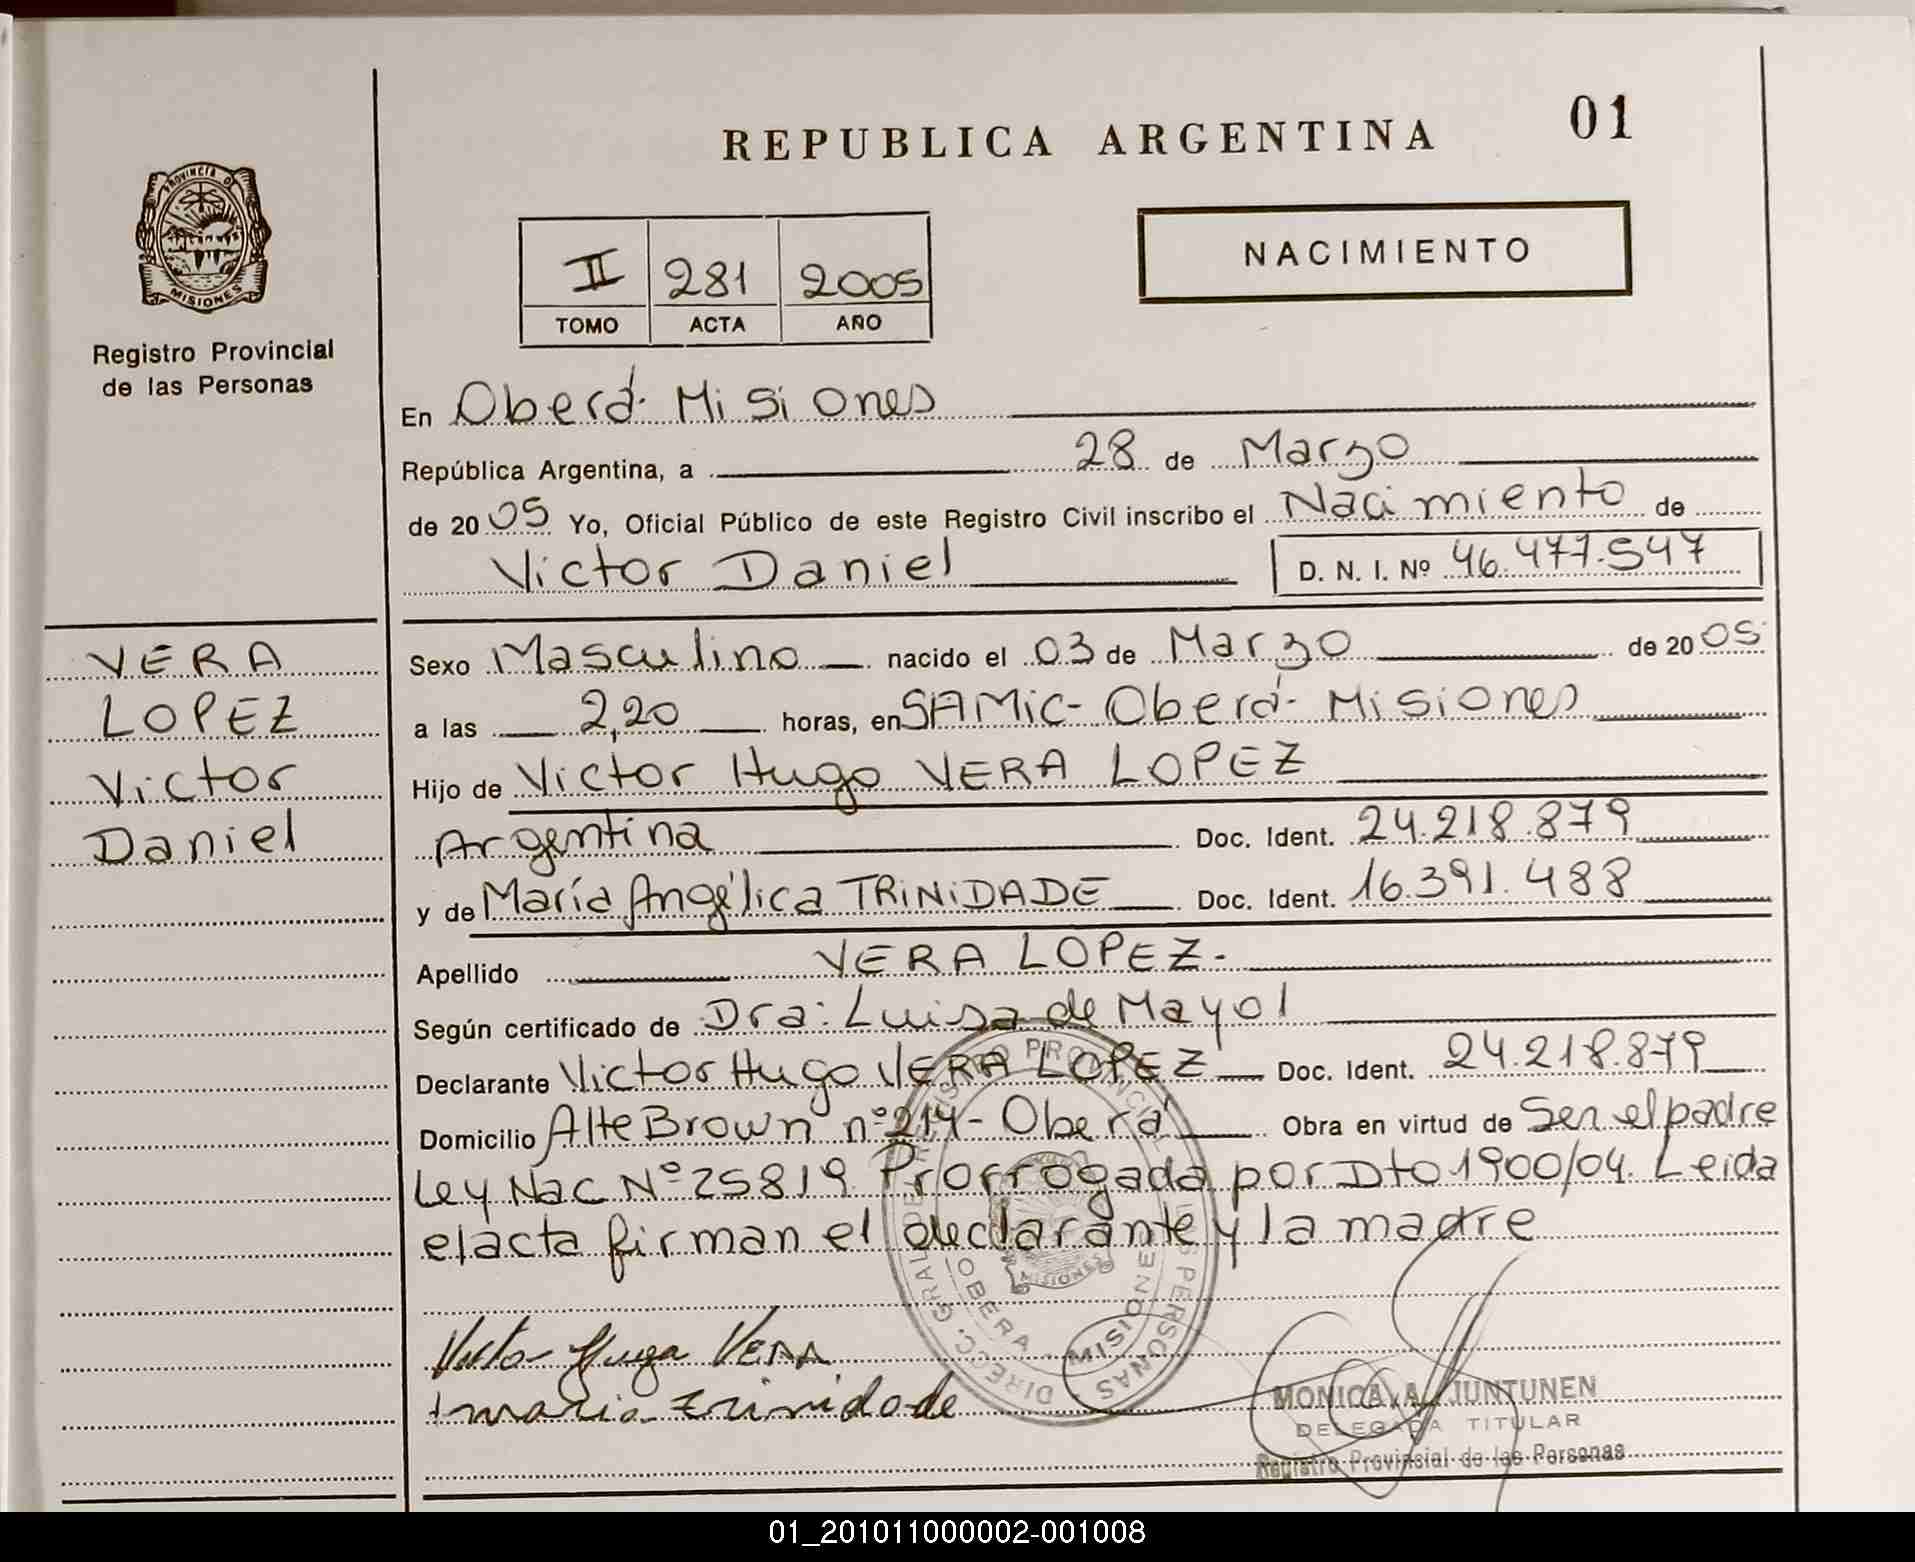 REPUBLICA ARGENTINA
01
PROVINCIA DE
MISIONES
Registro Provincial
de las Personas
II 281 2005
TOMO ACTA AÑO
NACIMIENTO
En Oberá- Misiones
República Argentina, a 28 de Marzo
de 2005 Yo, Oficial Público de este Registro Civil inscribo el Nacimiento de
Victor Daniel D. N. I. Nº 46.477.547
VERA
LOPEZ
Victor
Daniel
Sexo Masculino nacido el 03 de Marzo de 2005
a las 2,20 horas, en SAMIC- Oberá- Misiones
Hijo de Victor Hugo VERA LOPEZ
Argentina Doc. Ident. 24.218.879
y de María Angélica TRINIDADE Doc. Ident. 16.391.488
Apellido VERA LOPEZ.
Según certificado de Dra: Luisa de Mayol
Declarante Victor Hugo VERA LOPEZ Doc. Ident. 24.218.879
Domicilio Alte Brown nº 214- Oberá Obra en virtud de Ser el padre
Ley Nac Nº 25819 Prorrogada por Dto 1900/04. Leida
el acta firman el declarante y la madre
DIRECC. GRAL DE REGISTRO PROVINCIAL DE LAS PERSONAS
OBERA MISIONES
MISIONES
Victor Hugo VERA
maria trinidade
MONICA A. JUNTUNEN
DELEGADA TITULAR
Registro Provincial de las Personas
01_201011000002-001008